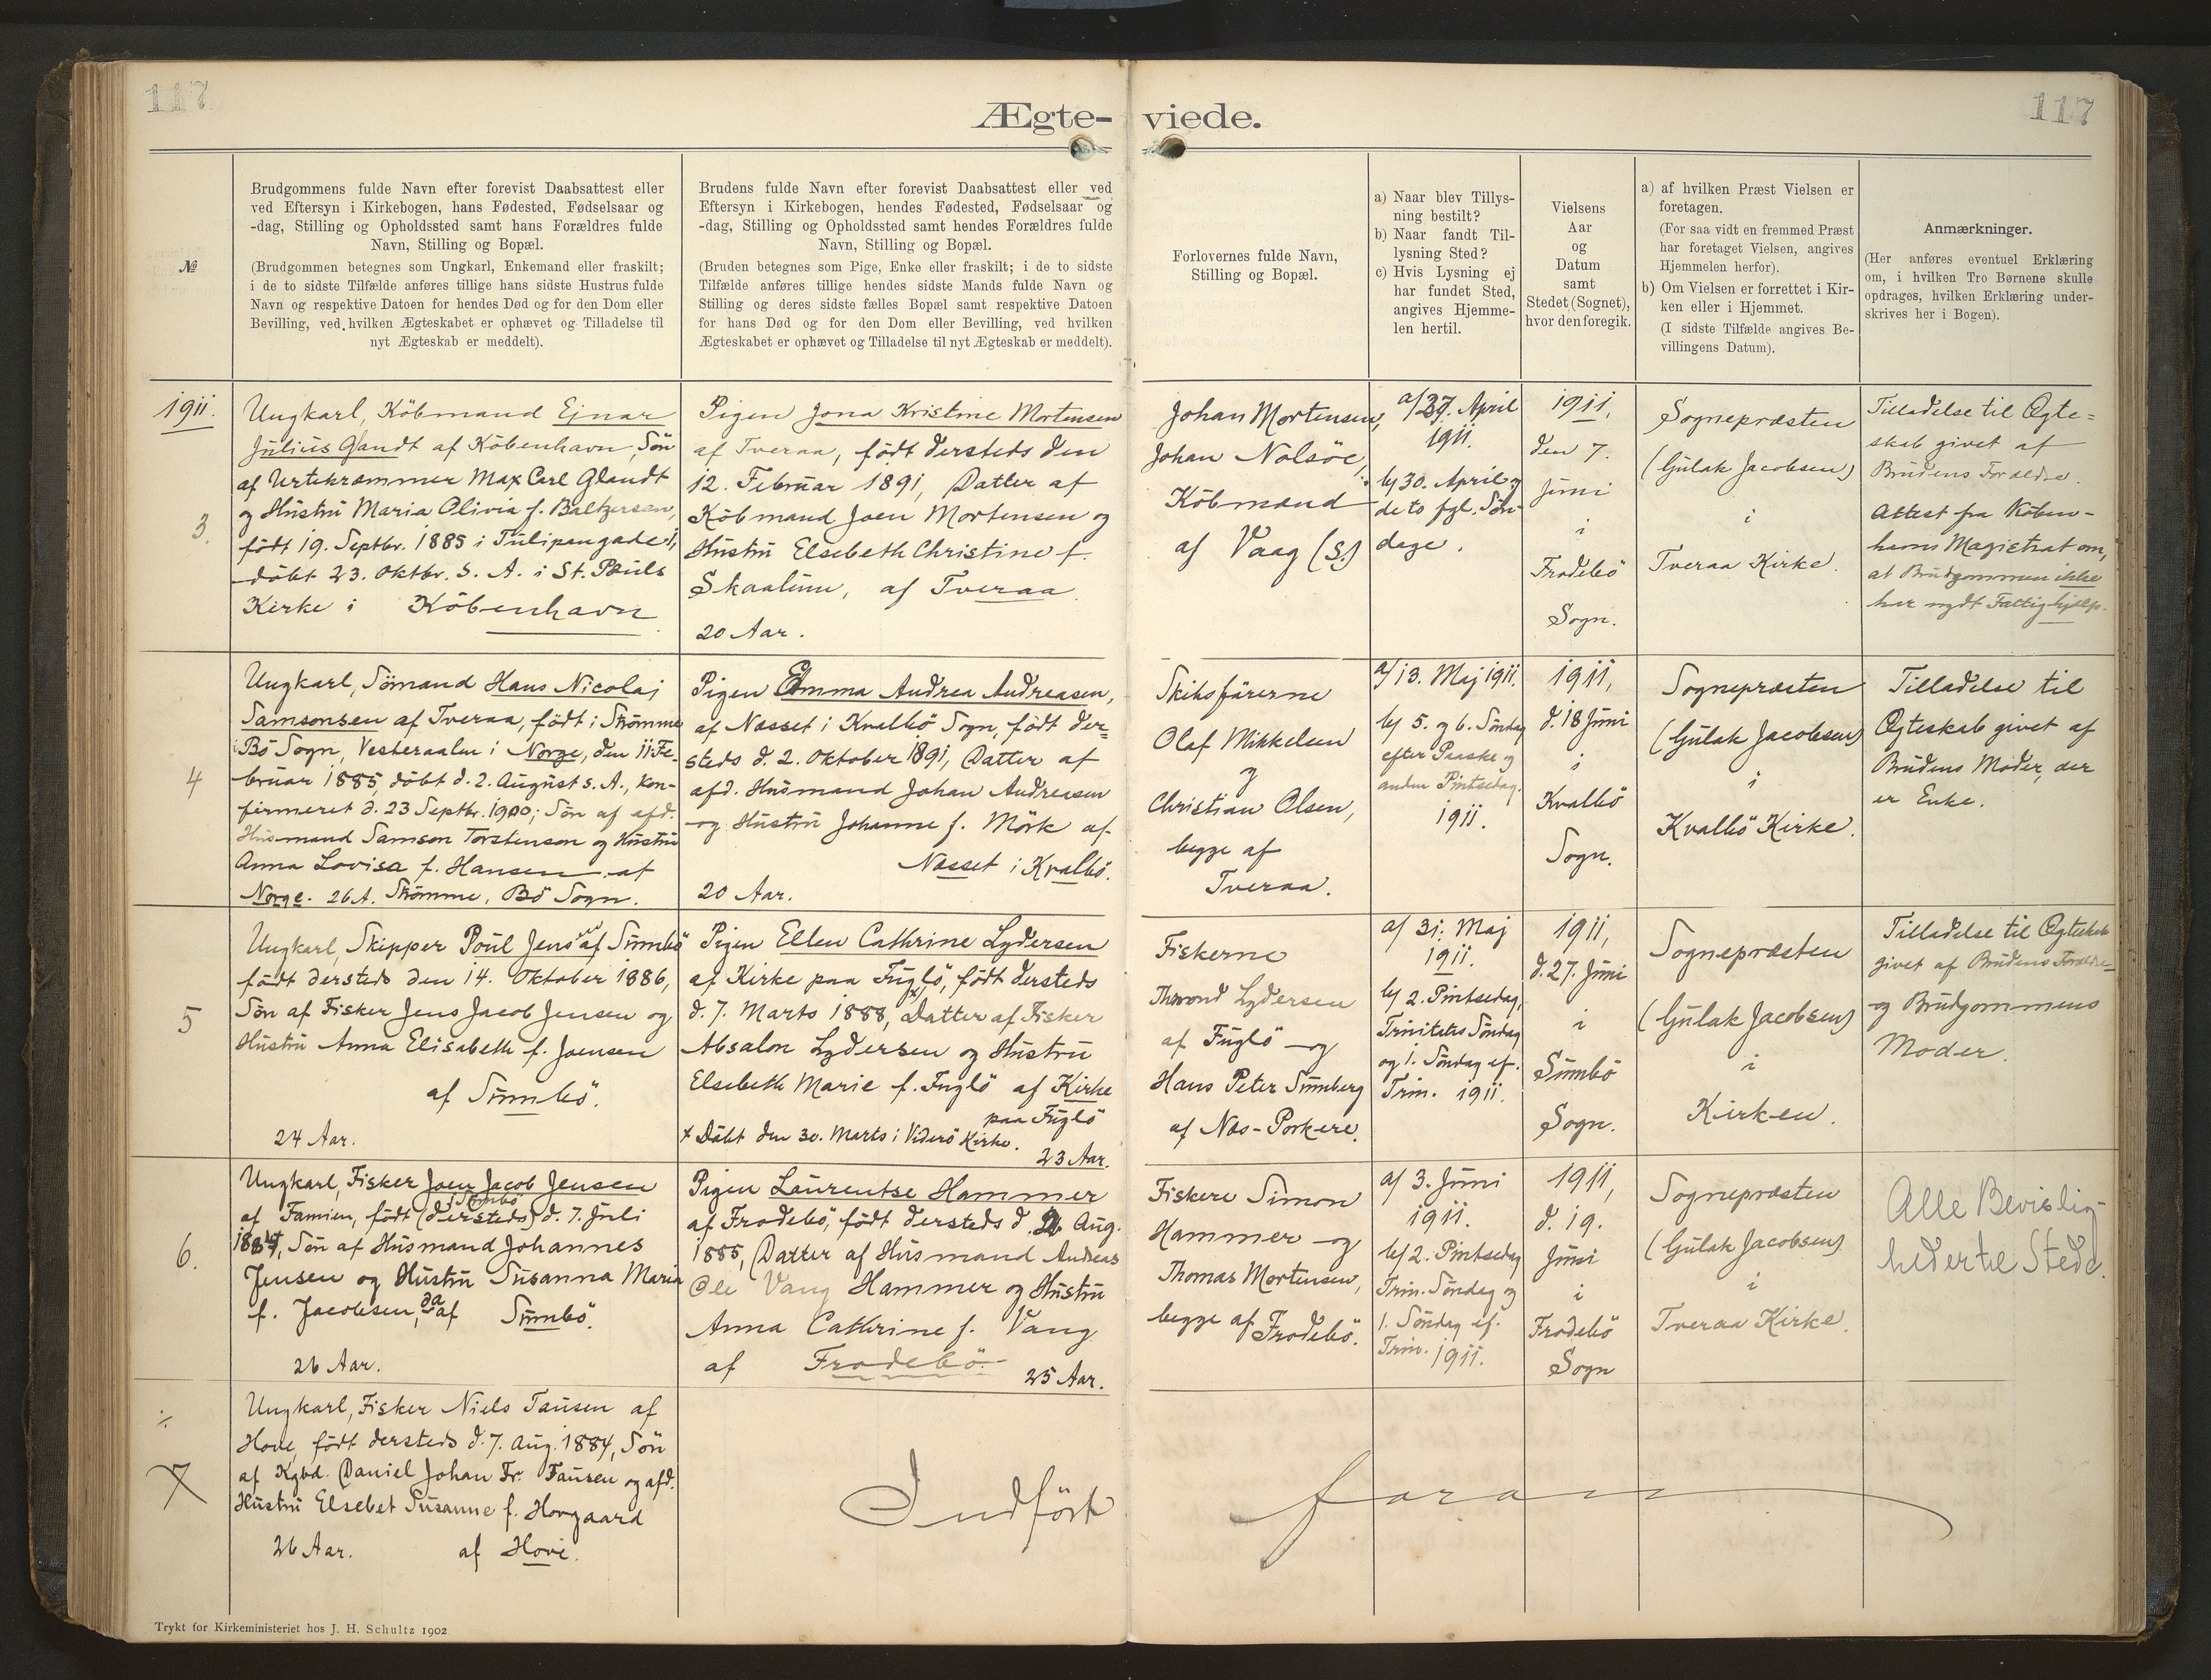 117
117
Ægte-
viede.
№
Brudgommens fulde Navn efter forevist Daabsattest eller
ved Eftersyn i Kirkebogen, hans Fødested, Fødselsaar og
-dag, Stilling og Opholdssted samt hans Forældres fulde
Navn, Stilling og Bopæl.
(Brudgommen betegnes som Ungkarl, Enkemand eller fraskilt;
i de to sidste Tilfælde anføres tillige hans sidste Hustrus fulde
Navn og respektive Datoen for hendes Død og for den Dom eller
Bevilling, ved hvilken Ægteskabet er ophævet og Tilladelse til
nyt Ægteskab er meddelt).
Brudens fulde Navn efter forevist Daabsattest eller ved
Eftersyn i Kirkebogen, hendes Fødested, Fødselsaar og
-dag, Stilling og Opholdssted samt hendes Forældres fulde
Navn, Stilling og Bopæl.
(Bruden betegnes som Pige, Enke eller fraskilt; i de to sidste
Tilfælde anføres tillige hendes sidste Mands fulde Navn og
Stilling og deres sidste fælles Bopæl samt respektive Datoen
for hans Død og for den Dom eller Bevilling, ved hvilken
Ægteskabet er ophævet og Tilladelse til nyt Ægteskab er meddelt).
Forlovernes fulde Navn,
Stilling og Bopæl.
a) Naar blev Tillys-
ning bestilt?
b) Naar fandt Til-
lysning Sted?
c) Hvis Lysning ej
har fundet Sted,
angives Hjemme-
len hertil.
Vielsens
Aar
og
Datum
samt
Stedet (Sognet),
hvor den foregik.
a) af hvilken Præst Vielsen er
foretagen.
(For saa vidt en fremmed Præst
har foretaget Vielsen, angives
Hjemmelen herfor).
b) Om Vielsen er forrettet i Kir-
ken eller i Hjemmet.
(I sidste Tilfælde angives Be-
villingens Datum).
Anmærkninger.
(Her anføres eventuel Erklæring
om, i hvilken Tro Børnene skulle
opdrages, hvilken Erklæring under-
skrives her i Bogen).
1911.
3.
Ungkarl, Köbmand Ejnar
Julius Glandt af København, Sön
af Urtekræmmer Max Carl Glandt
og Hustru Maria Olivia f. Baltzersen,
födt 19. Septbr. 1885 i Tulipangade 1,
döbt 23. Oktbr. s. A. i St. Pauls
Kirke i København
Pigen Jona Kristine Mortensen
af Tveraa, födt dersteds den
12. Februar 1891, Datter af
Köbmand Joen Mortensen og
Hustru Elsebeth Christine f.
Skaalum, af Tveraa
20 Aar.
Johan Mortensen,
Johan Nolsöe,
Köbmænd
af Vaag (S)
a/ 27. April
1911.
b/ 30. April og
de to fgl. Sön-
dage.
1911,
den 7.
Juni
i
Frodebö
Sogn.
Sognepræsten
(Gulak Jacobsen)
i
Tveraa Kirke.
Tilladelse til Ægte=
skab givet af
Brudens Forældre.
Attest fra Köben-
havns Magistrat om,
at Brudgommen ikke
har nydt Fattighjælp.
4
Ungkarl, Sömand Hans Nicolaj
Samsonsen af Tveraa, födt i Skömme
i Bö Sogn, Vesteraalen i Norge, den 11. Fe-
bruar 1885, döbt d. 2. August s. A., kon-
firmeret d. 23 Septbr. 1900; Sön af afd.
Husmand Samson Torstenson og Hustru
Anna Lovisa f. Hansen af
Norge. 26 A. Skömme, Bö Sogn.
Pigen Emma Andrea Andreasen,
af Næsset i Kvalbö Sogn, födt der=
steds d. 2. Oktober 1891, Datter af
afd. Husmand Johan Andreasen
og Hustru Johanne f. Mörk af
Næsset i Kvalbö.
20 Aar.
Skibsförerne
Olaf Mikkelsen
og
Christian Olsen,
begge af
Tveraa.
a/ 13. Maj 1911.
b/ 5. og 6. Söndag
efter Paaske og
anden Pintsedag.
1911.
1911,
d. 18 Juni
i
Kvalbö
Sogn.
Sognepræsten
(Gulak Jacobsen)
i
Kvalbö Kirke.
Tilladelse til
Ægteskab givet af
Brudens Moder, der
er Enke.
5
Ungkarl, Skipper Poul Jensen af Sumbö
födt dersteds den 14. Oktober 1886,
Sön af Fisker Jens Jacob Jensen og
Hustru Anna Elisabeth f. Joensen
af Sumbö.
24 Aar.
Pigen Ellen Cathrine Lydersen
af Kirke paa Fuglö, födt dersteds
d. 7. Marts 1888, x Datter af Fisker
Absalon Lydersen og Hustru
Elsebeth Marie f. Fuglö af Kirke
paa Fuglö
x Döbt den 30. Marts i Viderö Kirke.
23 Aar.
Fiskerne
Lydersen
af Fuglö og
Hans Peter Sumberg
af Næs-Porkere.
a/ 31. Maj
1911.
b/ 2. Pintsedag,
Trinitatis Söndag
og 1. Söndag ef.
Trin. 1911.
1911,
d. 27. Juni
i
Sumbö
Sogn.
Sognepræsten
(Gulak Jacobsen)
i
Kirken.
Tilladelse til Ægteskab
givet af Brudens Forældre
og Brudgommens
Moder.
6.
Ungkarl, Fisker Joen Jacob Jensen
i Sumbö
af Famien, födt (dersteds) d. 7. Juli
1884, Sön af Husmand Johannes
Jensen og Hustru Susanna Maria
f. Jacobsen, da af Sumbö.
26 Aar.
Pigen Laurentse Hammer
af Frodebö, födt dersteds d. 2. Aug.
1885, Datter af Husmand Andreas
Ole Vang Hammer og Hustru
Anna Cathrine f. Vang
af Frodebö
25 Aar.
Fiskere Simon
Hammer og
Thomas Mortensen,
begge af Frodebö.
a/ 3. Juni
1911.
b/ 2. Pintsedag
Trin. Söndag og
1. Söndag ef.
Trin. 1911.
1911,
d. 19.
Juni
i
Frodebö
Sogn
Sognepræsten
(Gulak Jacobsen)
i
Tveraa Kirke.
Alle Bevislig-
heder til Stede.
÷
7
Ungkarl, Fisker Niels Tausen af
Hove, födt dersteds d. 7. Aug. 1884, Sön
af Kgbd. Daniel Johan Fr. Tausen og afd.
Hustru Elsebet Susanne f. Hovgaard
26 Aar. af Hove.
Indfört
foran
Trykt for Kirkeministeriet hos J. H. Schultz 1902